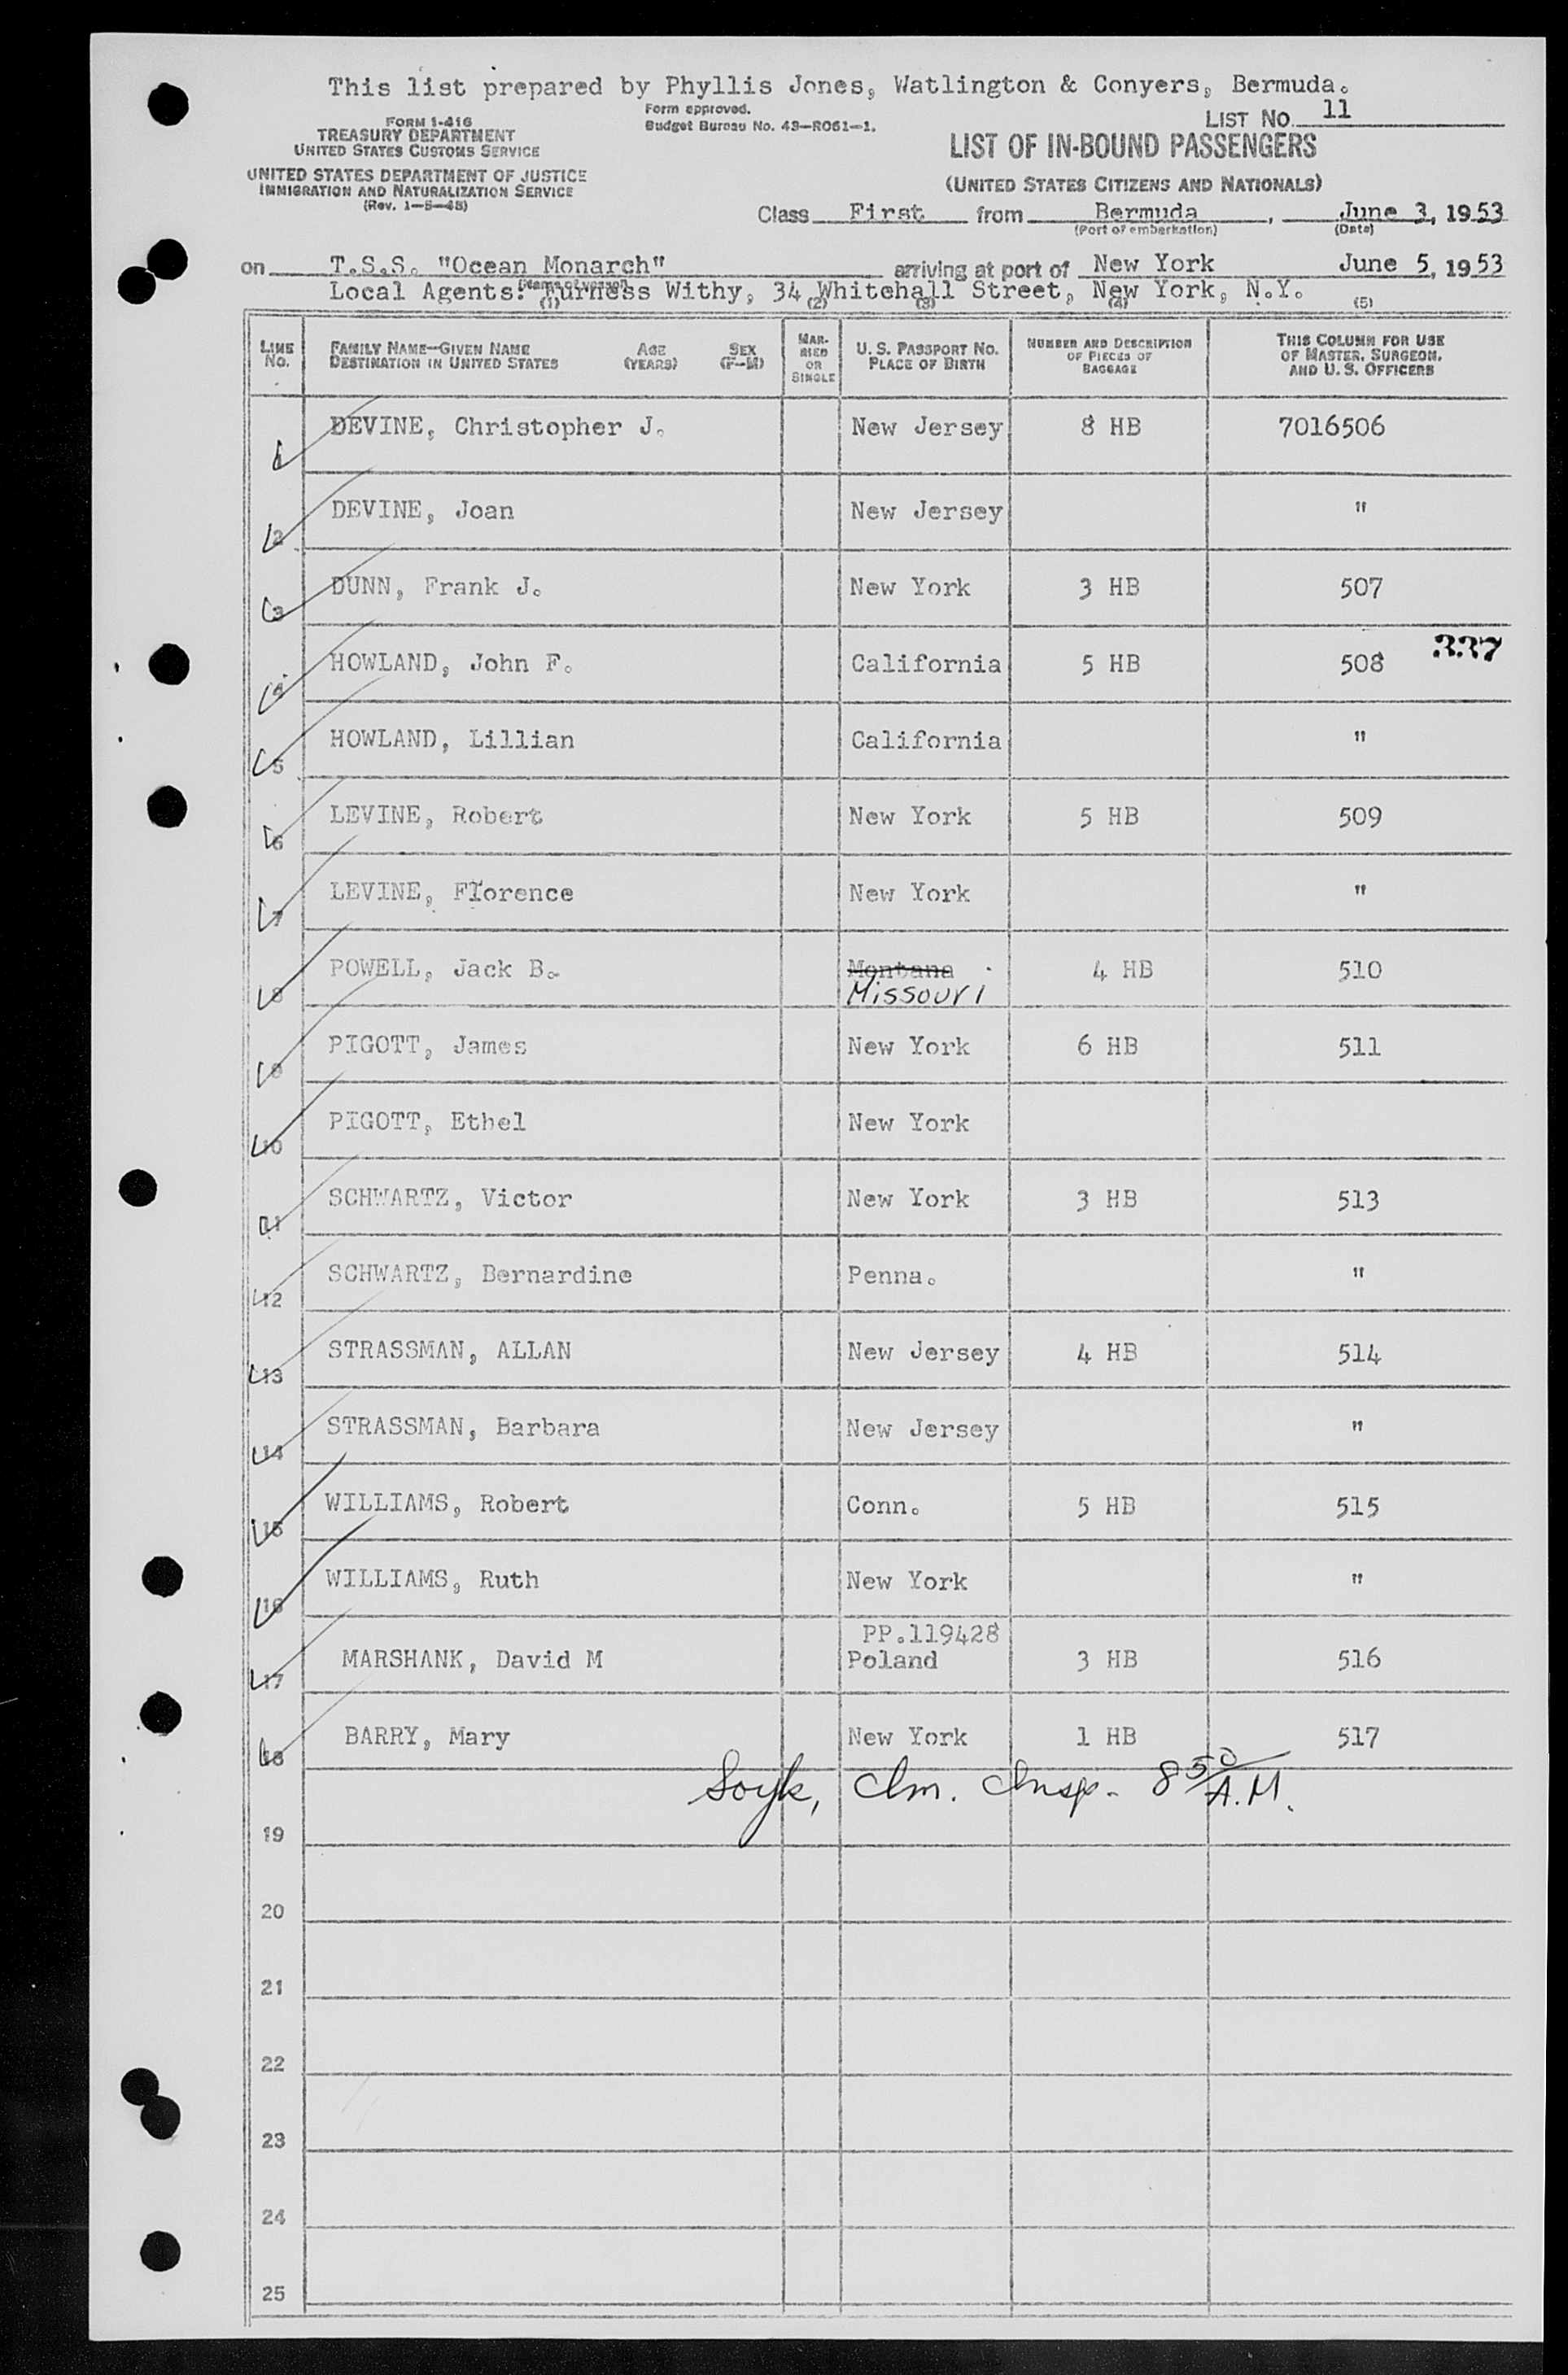 This list prepared by Phyllis Jones, Watlington & Conyers, Bermuda.
FORM I-416
TREASURY DEPARTMENT
UNITED STATES CUSTOMS SERVICE
UNITED STATES DEPARTMENT OF JUSTICE
IMMIGRATION AND NATURALIZATION SERVICE
(Rev. 1-5-48)
Form approved.
Budget Bureau No. 43-R061-1.
LIST NO. 11
LIST OF IN-BOUND PASSENGERS
(UNITED STATES CITIZENS AND NATIONALS)
Class First from Bermuda, June 3, 1953
(Port of embarkation) (Date)
on T.S.S. "Ocean Monarch" arriving at port of New York June 5, 1953
(Name of vessel)
Local Agents: Furness Withy, 34 Whitehall Street, New York, N.Y.
(1) (2) (3) (4) (5)
LINE No. FAMILY NAME—GIVEN NAME DESTINATION IN UNITED STATES AGE (YEARS) SEX (F-M) MARRIED OR SINGLE U. S. PASSPORT NO. PLACE OF BIRTH NUMBER AND DESCRIPTION OF PIECES OF BAGGAGE THIS COLUMN FOR USE OF MASTER, SURGEON, AND U. S. OFFICERS
1 DEVINE, Christopher J. New Jersey 8 HB 7016506
2 DEVINE, Joan New Jersey "
3 DUNN, Frank J. New York 3 HB 507
4 HOWLAND, John F. California 5 HB 508 337
5 HOWLAND, Lillian California "
6 LEVINE, Robert New York 5 HB 509
7 LEVINE, Florence New York "
8 POWELL, Jack B. Montana 4 HB 510
Missouri
9 PIGOTT, James New York 6 HB 511
10 PIGOTT, Ethel New York
11 SCHWARTZ, Victor New York 3 HB 513
12 SCHWARTZ, Bernardine Penna. "
13 STRASSMAN, ALLAN New Jersey 4 HB 514
14 STRASSMAN, Barbara New Jersey "
15 WILLIAMS, Robert Conn. 5 HB 515
16 WILLIAMS, Ruth New York "
PP.119428
17 MARSHANK, David M Poland 3 HB 516
18 BARRY, Mary New York 1 HB 517
Imm. Insp. 8 50 A.M.
19
20
21
22
23
24
25